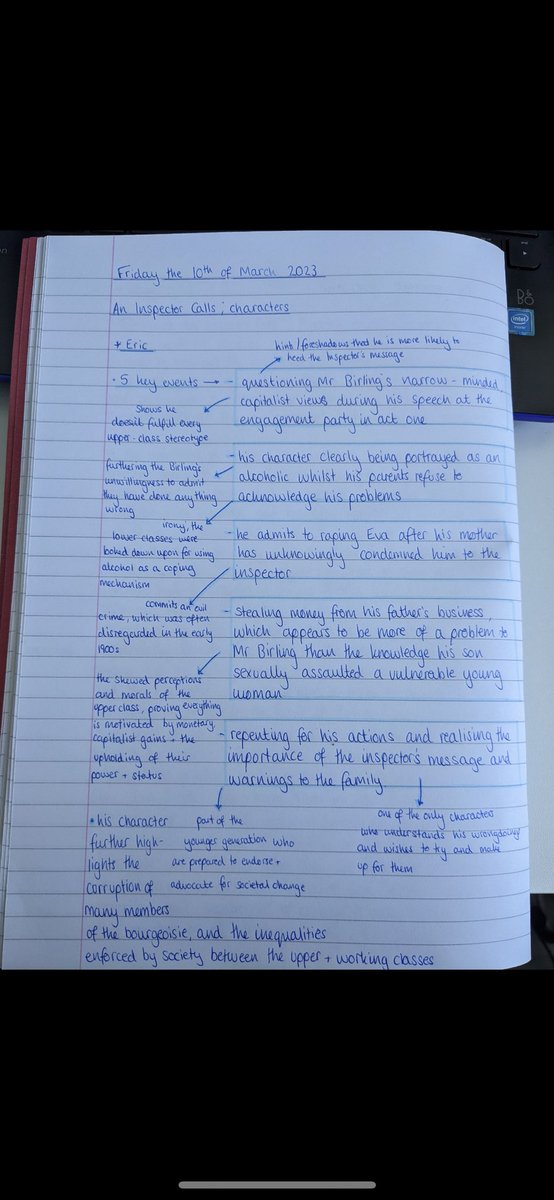 Friday the 10th of March 2023
An Inspector Calls; characters
+ Eric
hints/foreshadows that he is more likely to
heed the Inspector's message
• 5 key events → - questioning Mr Birling's narrow-minded
capitalist views during his speech at the
engagement party in act one
Shows he
doesn't fulfill every
upper-class stereotype
- his character clearly being portrayed as an
alcoholic whilst his parents refuse to
acknowledge his problems
furthering the Birling's
unwillingness to admit
they have done anything
wrong
irony, the
lower classes were
looked down upon for using
alcohol as a coping
mechanism
- he admits to raping Eva after his mother
has unknowingly condemned him to the
inspector
commits an evil
crime, which was often
disregarded in the early
1900s
- stealing money from his father's business,
which appears to be more of a problem to
Mr Birling than the knowledge his son
sexually assaulted a vulnerable young
woman
the skewed perceptions
and morals of the
upper class, proving everything
is motivated by monetary,
capitalist gains + the
upholding of their
power + status
- repenting for his actions and realising the
importance of the inspector's message and
warnings to the family
part of the
younger generation who
are prepared to endorse +
advocate for societal change
one of the only characters
who understands his wrongdoing
and wishes to try and make
up for them
• his character
further high-
lights the
corruption of
many members
of the bourgeoisie, and the inequalities
enforced by society between the upper + working classes
intel